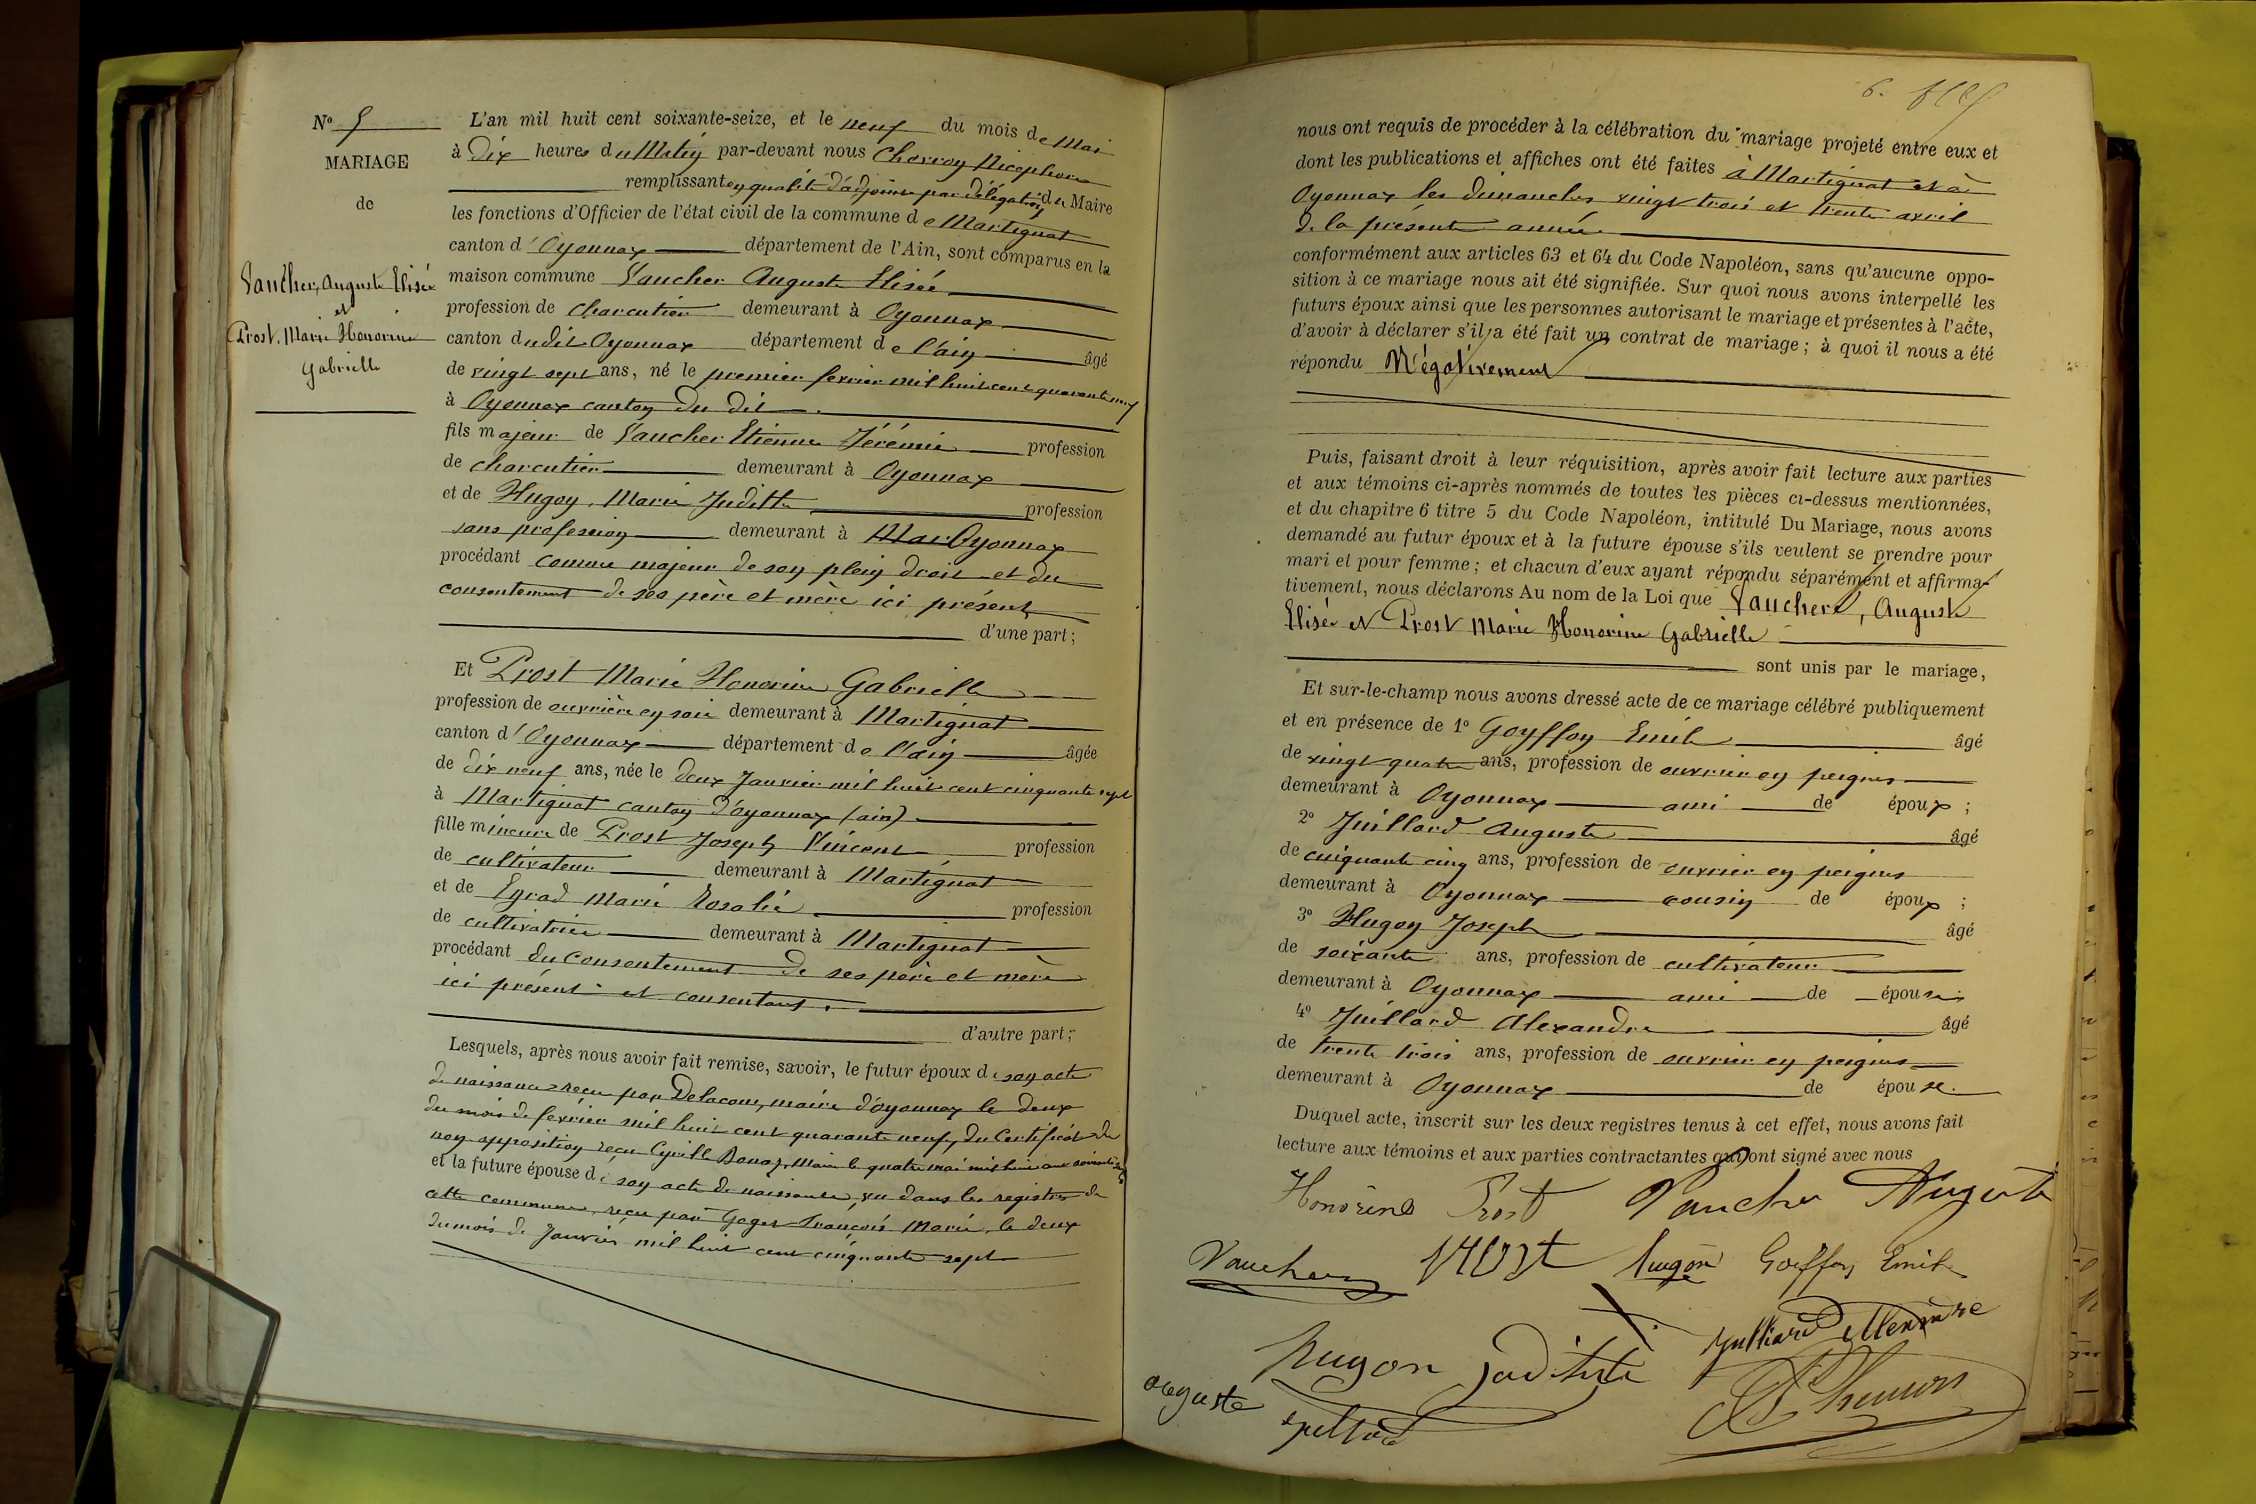 N° 5
MARIAGE
de
Vaucher, Auguste Elisée
et
Prost, Marie Honorine
Gabrielle
L'an mil huit cent soixante-seize, et le neuf du mois de Mai
à Dix heures du Matin par-devant nous Cherroy Nicephore
remplissant en qualité d'adjoint par délégation du Maire
les fonctions d'Officier de l'état civil de la commune de Martignat
canton d'Oyonnax département de l'Ain, sont comparus en la
maison commune Vaucher Auguste Elisée
profession de charcutier demeurant à Oyonnax
canton dudit Oyonnax département de l'ain âgé
de vingt sept ans, né le premier fevrier mil huit cent quarante neuf
à Oyonnax canton du dit
fils majeur de Vaucher Etienne Jérémie profession
de charcutier demeurant à Oyonnax
et de Hugon, Marie Judith profession
sans profession demeurant à Mar Oyonnax
procédant comme majeur de son plein droit et du
consentement de ses père et mère ici présent
d'une part;
Et Prost Marie Honorine Gabrielle
profession de ouvrière en soie demeurant à Martignat
canton d'Oyonnax département de l'ain âgée
de dix neuf ans, née le deux Janvier mil huit cent cinquante sept
à Martignat canton d'oyonnax (ain)
fille mineure de Prost Joseph Vincent profession
de cultivateur demeurant à Martignat
et de Egrad Marie Rosalie profession
de cultivatrice demeurant à Martignat
procédant du Consentement de ses père et mère
ici présent et consentant.
d'autre part;
Lesquels, après nous avoir fait remise, savoir, le futur époux de son acte
de naissance reçu par Delacour, maire d'oyonnax le deux
du mois de fevrier mil huit cent quarante neuf, du Certificat de
non opposition reçu Cyrille Bonaz, Maire le quatre mai mil huit cent soixante seize
et la future épouse de son acte de naissance, vu dans les registres de
cette commune, reçu par Goger François Marie, le deux
du mois de Janvier mil huit cent cinquante sept
6.
nous ont requis de procéder à la célébration du mariage projeté entre eux et
dont les publications et affiches ont été faites à Martignat et à
Oyonnax les dimanches vingt trois et trente avril
de la présente année.
conformément aux articles 63 et 64 du Code Napoléon, sans qu'aucune oppo-
sition à ce mariage nous ait été signifiée. Sur quoi nous avons interpellé les
futurs époux ainsi que les personnes autorisant le mariage et présentes à l'acte,
d'avoir à déclarer s'il a été fait un contrat de mariage; à quoi il nous a été
répondu Négativement
Puis, faisant droit à leur réquisition, après avoir fait lecture aux parties
et aux témoins ci-après nommés de toutes les pièces ci-dessus mentionnées,
et du chapitre 6 titre 5 du Code Napoléon, intitulé Du Mariage, nous avons
demandé au futur époux et à la future épouse s'ils veulent se prendre pour
mari et pour femme; et chacun d'eux ayant répondu séparément et affirma-
tivement, nous déclarons Au nom de la Loi que Vaucher, Auguste
Elisée et Prost Marie Honorine Gabrielle
sont unis par le mariage,
Et sur-le-champ nous avons dressé acte de ce mariage célébré publiquement
et en présence de 1° Goyffon Emile âgé
de vingt quatre ans, profession de ouvrier en peignes
demeurant à Oyonnax ami de époux ;
2° Juillard Auguste âgé
de cinquante cinq ans, profession de ouvrier en peignes
demeurant à Oyonnax cousin de époux ;
3° Hugon Joseph âgé
de soixante ans, profession de cultivateur
demeurant à Oyonnax ami de épouse;
4° Juillard Alexandre âgé
de trente trois ans, profession de ouvrier en peignes
demeurant à Oyonnax de épouse.
Duquel acte, inscrit sur les deux registres tenus à cet effet, nous avons fait
lecture aux témoins et aux parties contractantes qui ont signé avec nous
Honorine Prost Vaucher Auguste
Vaucher Prost hugon Goiffon Emile
hugon Judithte
auguste